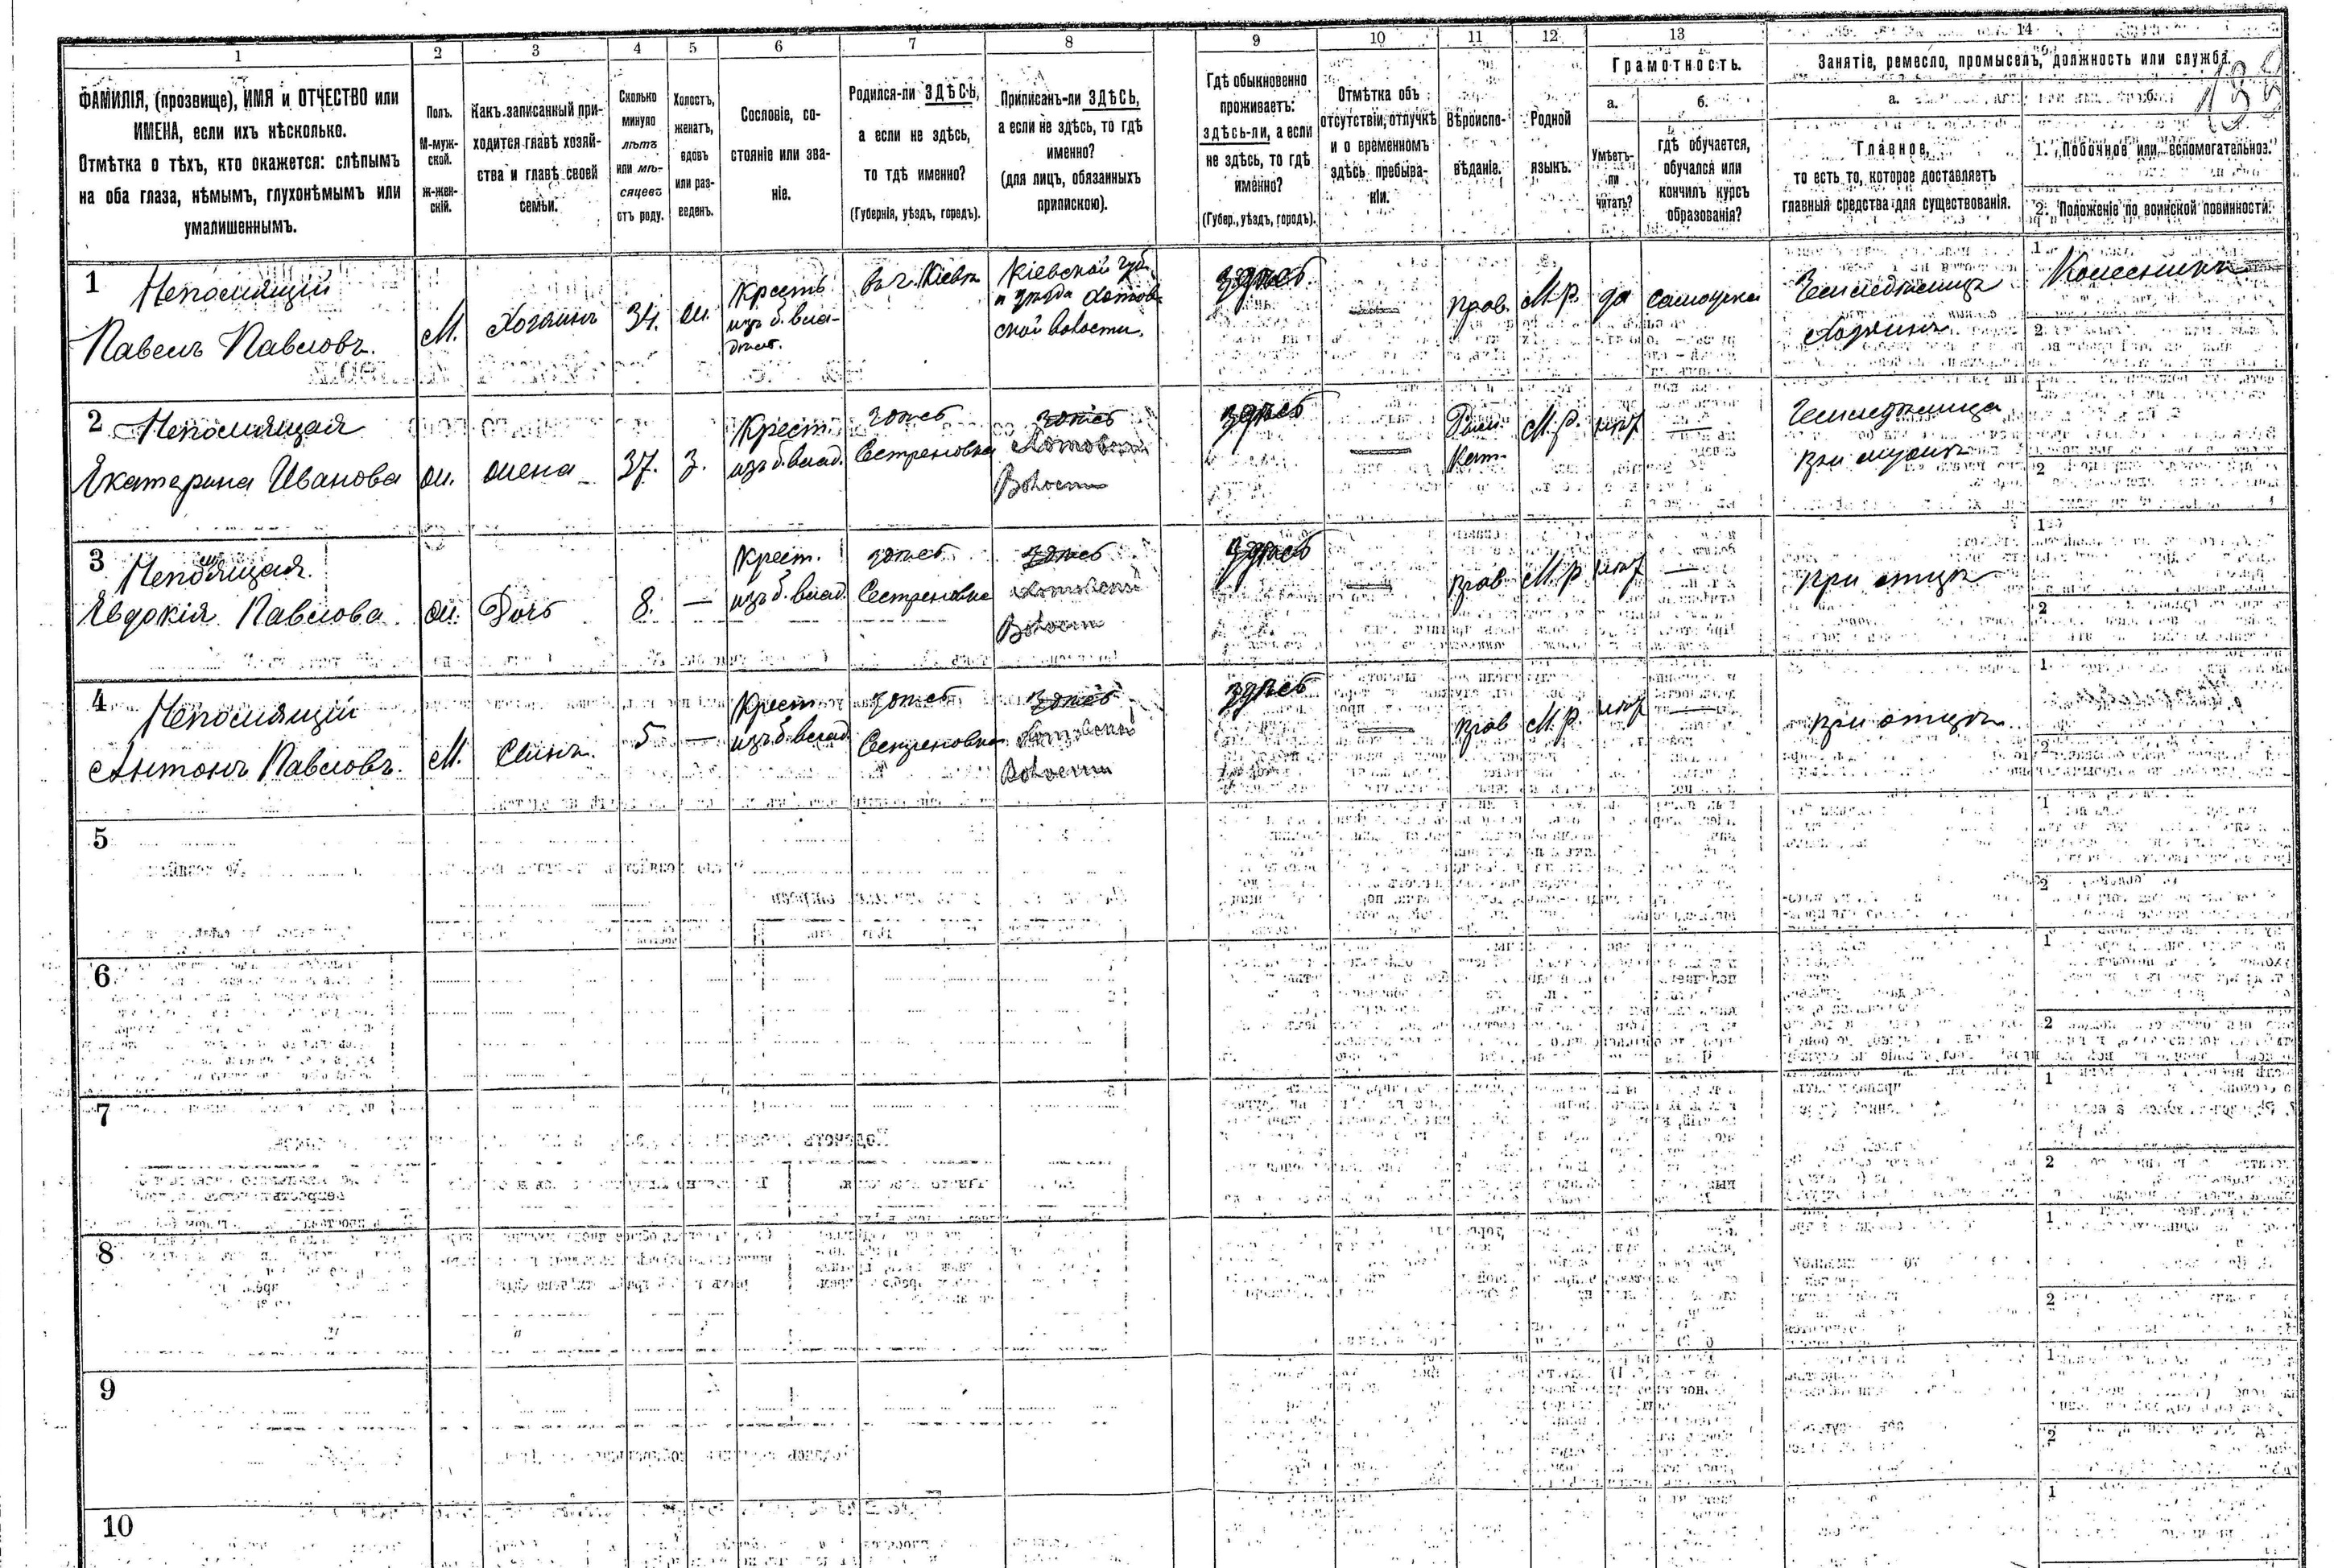 1 2 3 4 5 6 7 8 9 10 11 12 13 14
ФАМИЛІЯ, (прозвище), ИМЯ и ОТЧЕСТВО или
ИМЕНА, если ихъ нѣсколько.
Отмѣтка о тѣхъ, кто окажется: слѣпымъ
на оба глаза, нѣмымъ, глухонѣмымъ или
умалишеннымъ.
Полъ.
М-муж-
ской.
ж-жен-
скій.
Какъ записанный при-
ходится главѣ хозяй-
ства и главѣ своей
семьи.
Сколько
минуло
лѣтъ
или мѣ-
сяцевъ
отъ роду.
Холостъ,
женатъ,
вдовъ
или раз-
веденъ.
Сословіе, со-
стояніе или зва-
ніе.
Родился-ли ЗДѢСЬ,
а если не здѣсь,
то гдѣ именно?
(Губернія, уѣздъ, городъ).
Приписанъ-ли ЗДѢСЬ,
а если не здѣсь, то гдѣ
именно?
(для лицъ, обязанныхъ
припискою).
Гдѣ обыкновенно
проживаетъ:
здѣсь-ли, а если
не здѣсь, то гдѣ
именно?
(Губер., уѣздъ, городъ).
Отмѣтка объ
отсутствіи, отлучкѣ
и о временномъ
здѣсь пребыва-
ніи.
Вѣроиспо-
вѣданіе.
Родной
языкъ.
Грамотность.
а.
Умѣетъ-
ли
читать?
б.
гдѣ обучается,
обучался или
кончилъ курсъ
образованія?
Занятіе, ремесло, промыселъ, должность или служба.
а.
Главное,
то есть то, которое доставляетъ
главныя средства для существованія.
б.
1. Побочное или вспомогательное.
2. Положеніе по воинской повинности.
138
1
Непомящій
Павелъ Павловъ.
М.
Хозяинъ
34.
ж.
Крестъ
изъ б. вла-
дѣл.
въ г. Кіевѣ
Кіевской губ.
и уѣзда Хотов-
ской волости.
здѣсь
—
Прав.
М.р.
да
самоучка
Земледѣлецъ
Хозяинъ
1
Колесникъ
2
2
Непомящая
Екатерина Иванова
ж.
жена
37.
з.
Крест.
изъ б. влад.
здѣсь
Сестреновка
здѣсь
Хотовской
Волости
здѣсь
—
Рим.
Кат.
М.р.
нѣт
—
Земледѣлица
при мужѣ
1
2
3
Непомящая
Явдокія Павлова.
ж.
Дочь
8.
—
Крест.
изъ б. влад.
здѣсь
Сестреновка
здѣсь
Хотовской
Волости
здѣсь
—
Прав.
М.р.
нѣт
—
при отцѣ
1
2
4
Непомящій
Антонъ Павловъ.
М.
Сынъ
5
—
Крест.
изъ б. влад.
здѣсь
Сестреновка
здѣсь
Хотовской
Волости
здѣсь
—
Прав
М.р.
нѣт
—
при отцѣ
1
2
5
1
2
6
1
2
7
1
2
8
1
2
9
1
2
10
1